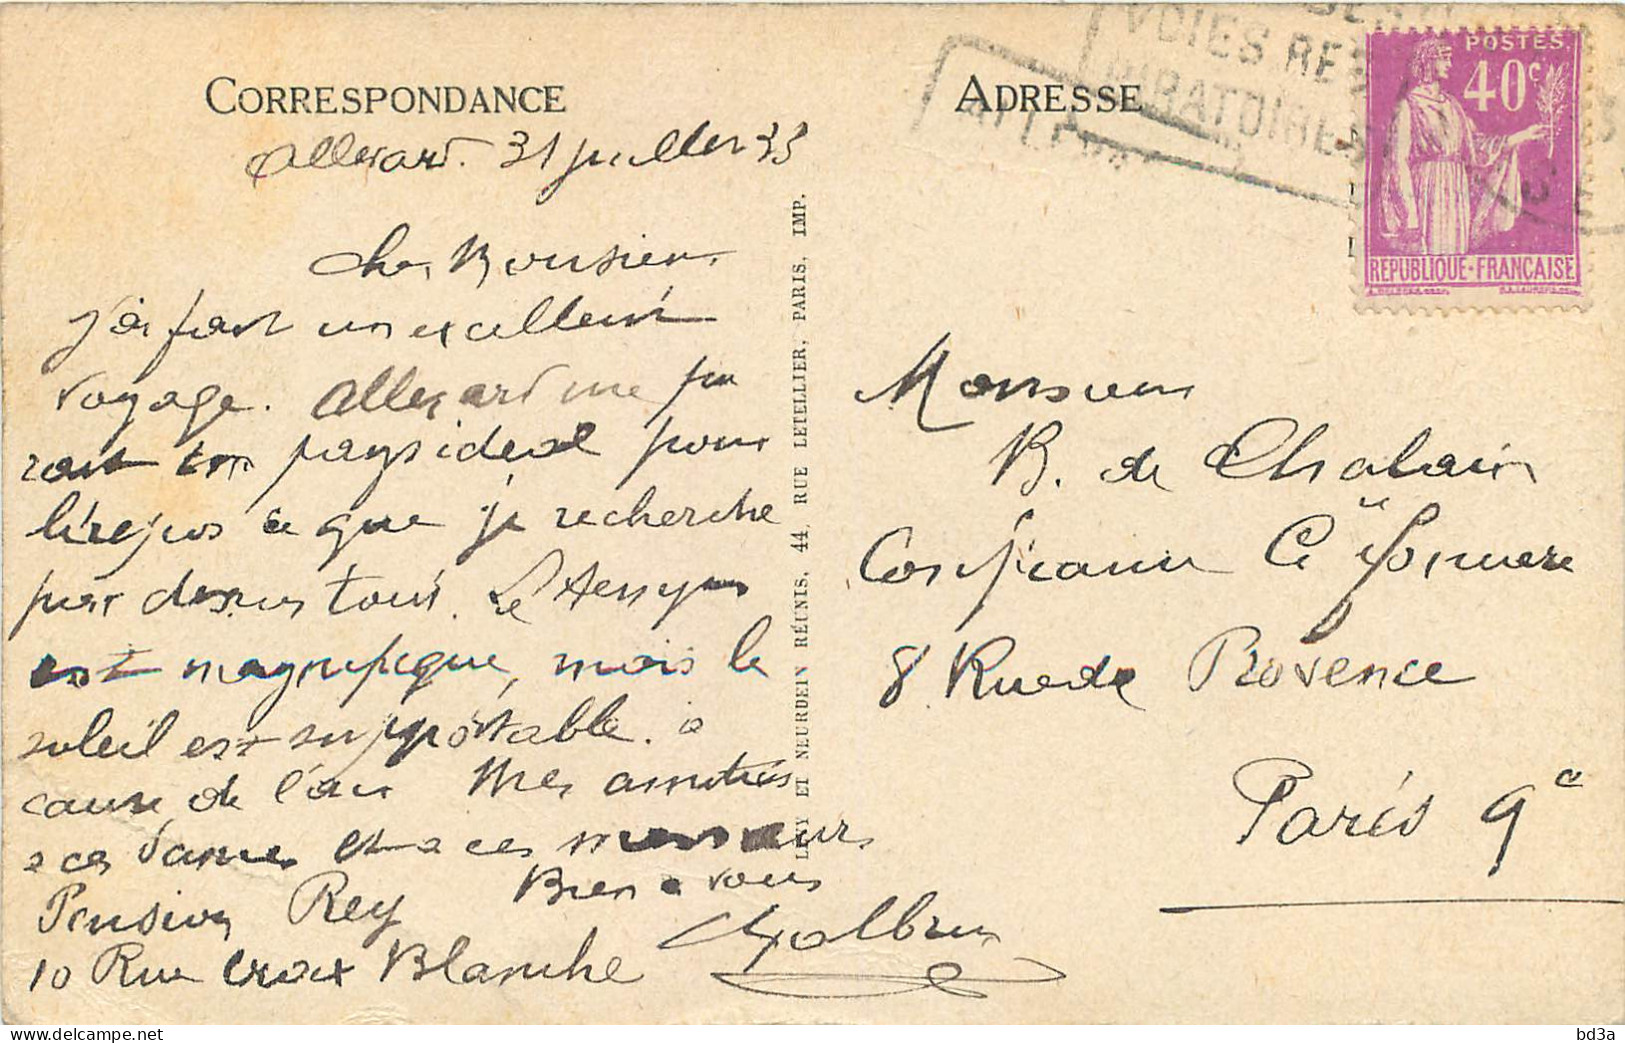 CORRESPONDANCE
Allevard. 31 juillet 33
Cher Monsieur
J'ai fait un excellent
voyage. Allevard me pa
rait un pays idéal pour
le repos ce que je recherche
par dessus tout. Le temps
est magnifique, mais le
soleil est supportable. à
cause de l'air Mes amitiés
a ces dames et a ces messieurs
Bien a vous
Pension Rey
10 Rue Croix Blanche
LEVY ET NEURDEIN RÉUNIS, 44, RUE LETELLIER, PARIS, IMP.
ADRESSE
VOIES RES
PIRATOIRES
POSTES
40c
REPUBLIQUE-FRANÇAISE
Monsieur
B. de Chalain
8 Rue de Provence
Paris 9e
bd3a